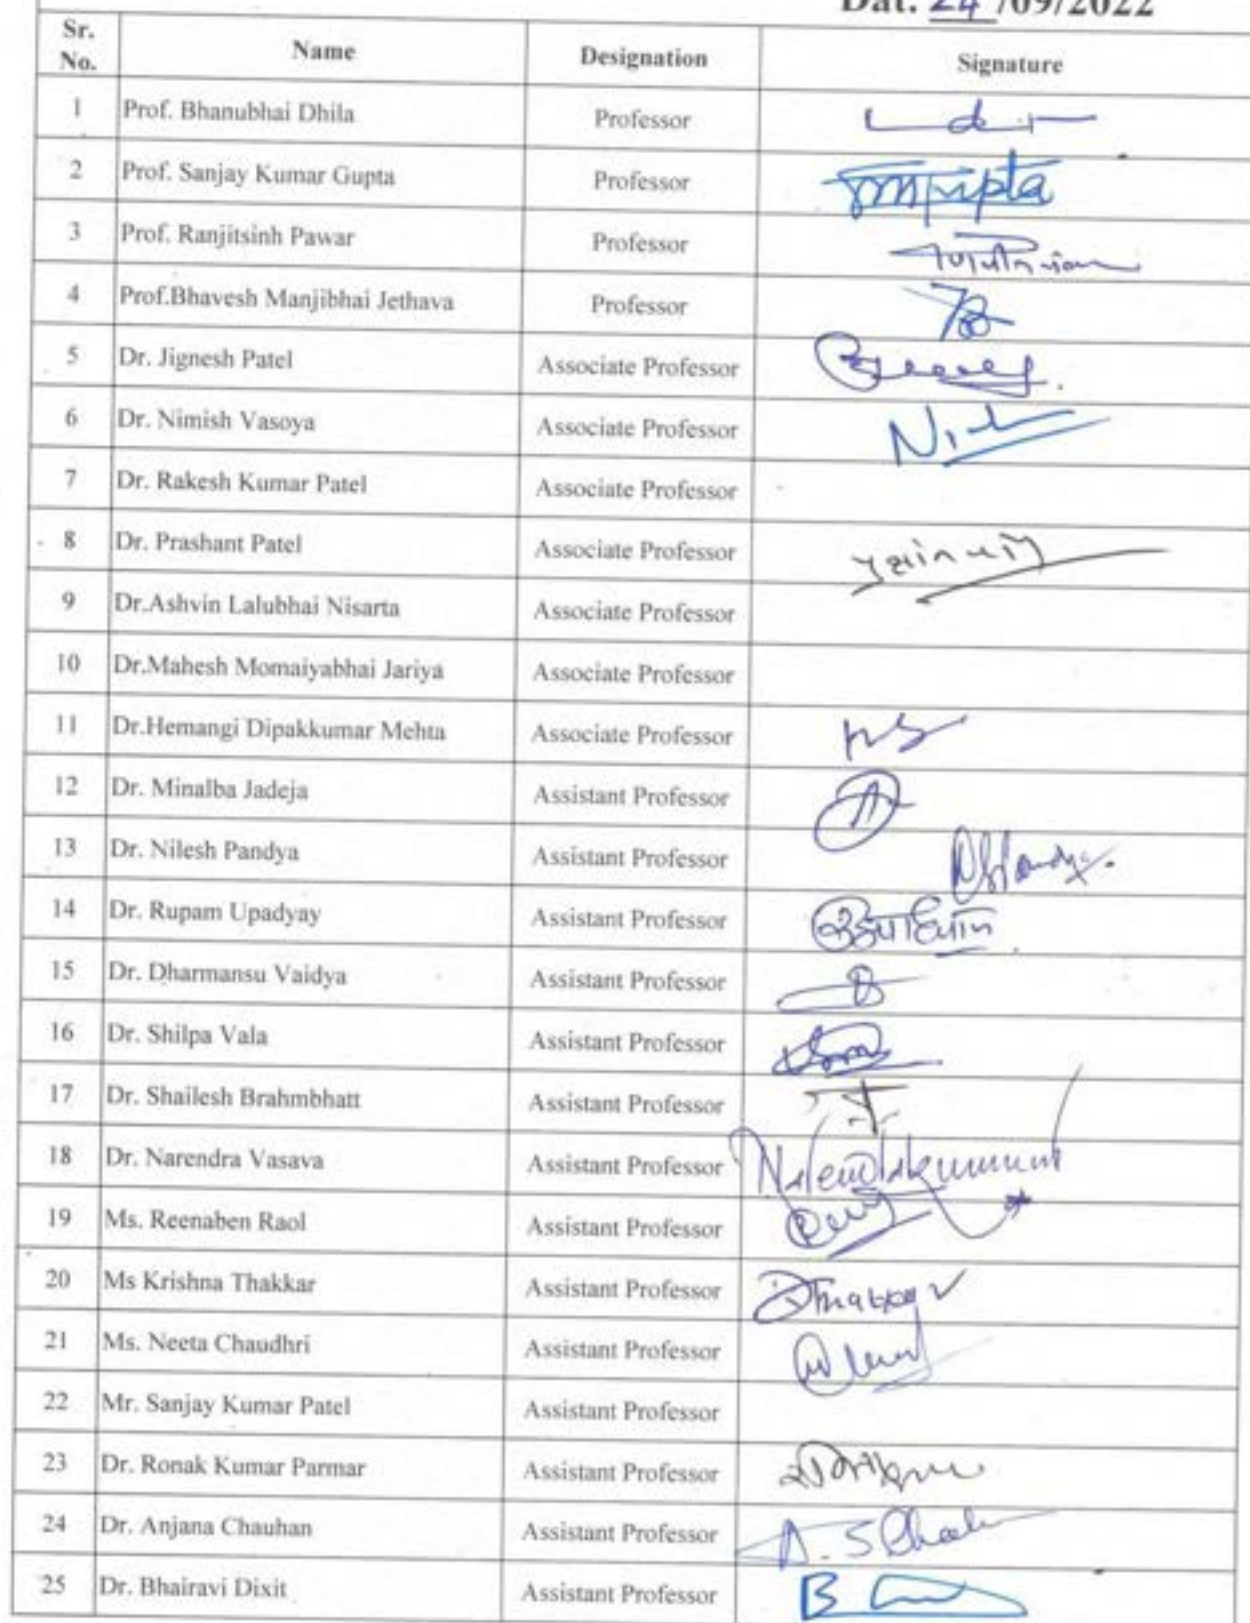 Dat. 24 /09/2022
Sr. No. Name Designation Signature
1 Prof. Bhanubhai Dhila Professor
2 Prof. Sanjay Kumar Gupta Professor
3 Prof. Ranjitsinh Pawar Professor
4 Prof.Bhavesh Manjibhai Jethava Professor
5 Dr. Jignesh Patel Associate Professor
6 Dr. Nimish Vasoya Associate Professor
7 Dr. Rakesh Kumar Patel Associate Professor
8 Dr. Prashant Patel Associate Professor
9 Dr.Ashvin Lalubhai Nisarta Associate Professor
10 Dr.Mahesh Momaiyabhai Jariya Associate Professor
11 Dr.Hemangi Dipakkumar Mehta Associate Professor
12 Dr. Minalba Jadeja Assistant Professor
13 Dr. Nilesh Pandya Assistant Professor
14 Dr. Rupam Upadyay Assistant Professor
15 Dr. Dharmansu Vaidya Assistant Professor
16 Dr. Shilpa Vala Assistant Professor
17 Dr. Shailesh Brahmbhatt Assistant Professor
18 Dr. Narendra Vasava Assistant Professor
19 Ms. Reenaben Raol Assistant Professor
20 Ms Krishna Thakkar Assistant Professor
21 Ms. Neeta Chaudhri Assistant Professor
22 Mr. Sanjay Kumar Patel Assistant Professor
23 Dr. Ronak Kumar Parmar Assistant Professor
24 Dr. Anjana Chauhan Assistant Professor
25 Dr. Bhairavi Dixit Assistant Professor